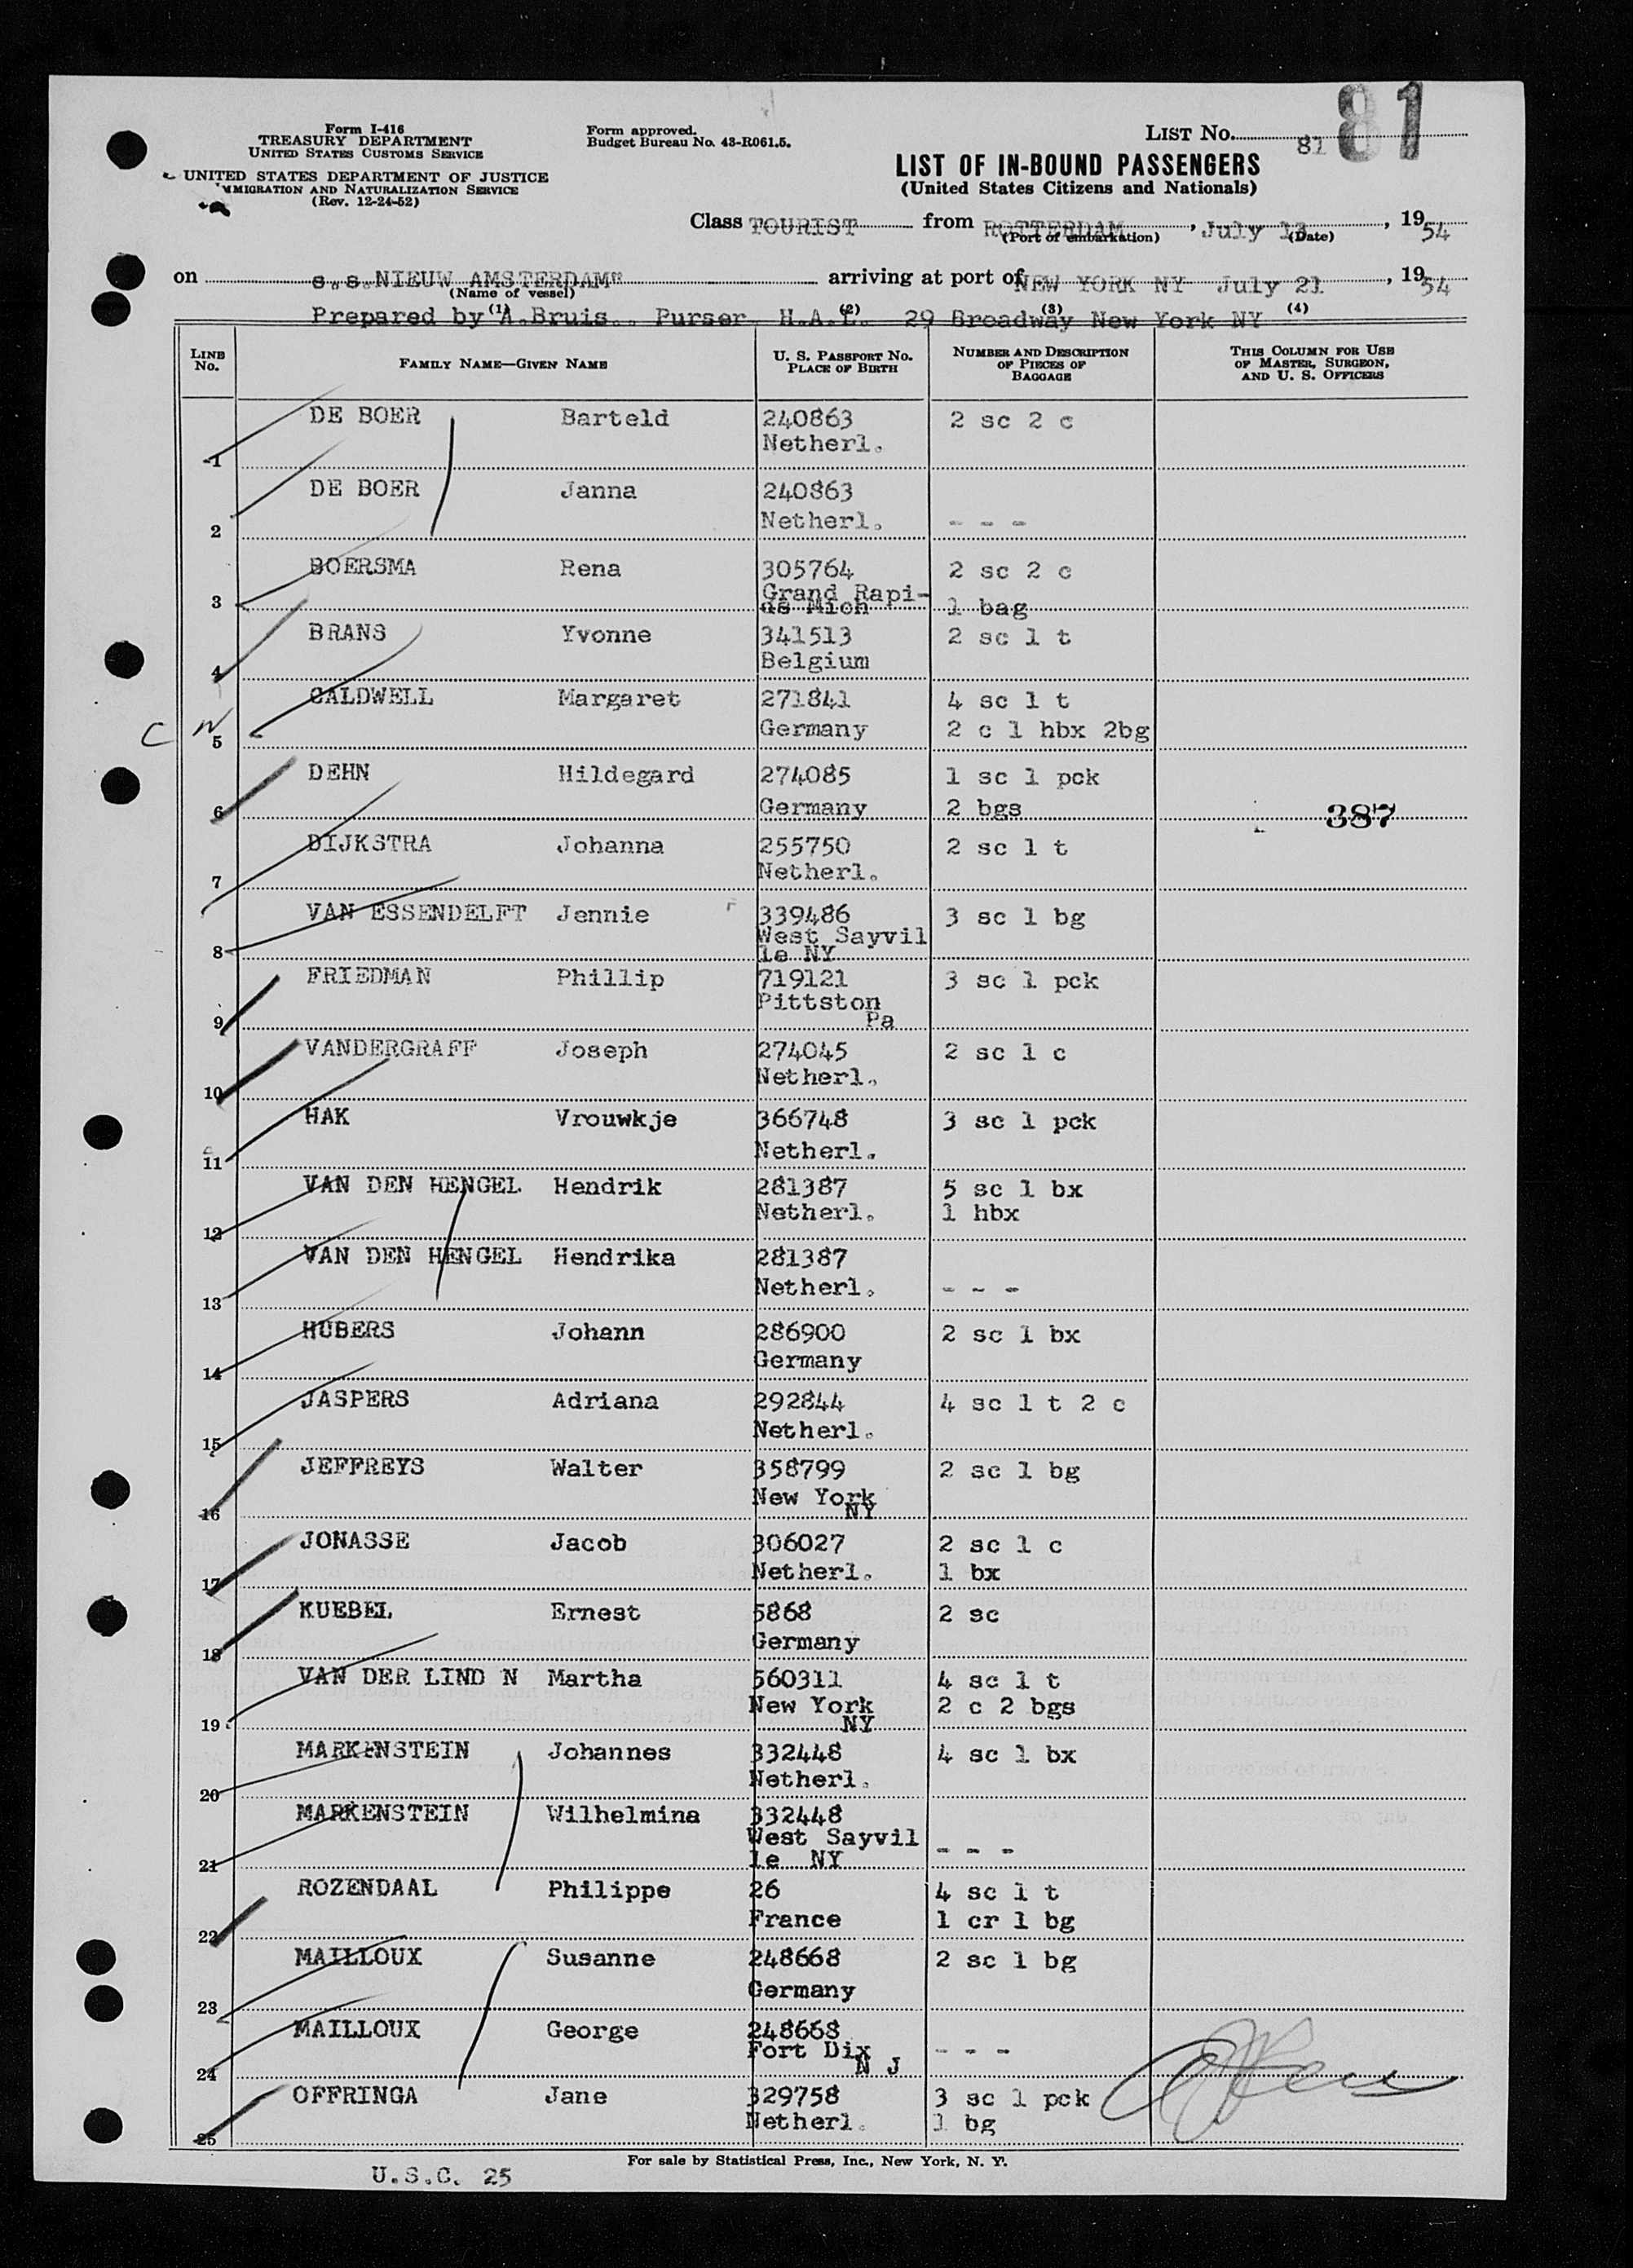 81
Form I-416
TREASURY DEPARTMENT
UNITED STATES CUSTOMS SERVICE
UNITED STATES DEPARTMENT OF JUSTICE
IMMIGRATION AND NATURALIZATION SERVICE
(Rev. 12-24-52)
Form approved.
Budget Bureau No. 43-R061.5.
LIST NO. 81
LIST OF IN-BOUND PASSENGERS
(United States Citizens and Nationals)
Class TOURIST from ROTTERDAM, July 13, 1954
(Port of embarkation) (Date)
on s.s.NIEUW AMSTERDAM" arriving at port of NEW YORK NY July 21, 1954
(Name of vessel)
Prepared by A.Bruis.. Purser H.A.L. 29 Broadway New York NY
(1) (2) (3) (4)
LINE No. FAMILY NAME—GIVEN NAME U. S. PASSPORT No. PLACE OF BIRTH NUMBER AND DESCRIPTION OF PIECES OF BAGGAGE THIS COLUMN FOR USE OF MASTER, SURGEON, AND U. S. OFFICERS
DE BOER Barteld 240863 2 sc 2 c
1 Netherl.
DE BOER Janna 240863
2 Netherl. - - -
BOERSMA Rena 305764 2 sc 2 c
3 Grand Rapi-
ds Mich 1 bag
BRANS Yvonne 341513 2 sc 1 t
4 Belgium
CALDWELL Margaret 271841 4 sc 1 t
C N 5 Germany 2 c 1 hbx 2bg
DEHN Hildegard 274085 1 sc 1 pck
6 Germany 2 bgs 387
DIJKSTRA Johanna 255750 2 sc 1 t
7 Netherl.
VAN ESSENDELFT Jennie 339486 3 sc 1 bg
8 West Sayvil
le NY
FRIEDMAN Phillip 719121 3 sc 1 pck
9 Pittston
Pa
VANDERGRAFF Joseph 274045 2 sc 1 c
10 Netherl.
HAK Vrouwkje 366748 3 sc 1 pck
11 Netherl.
VAN DEN HENGEL Hendrik 281387 5 sc 1 bx
12 Netherl. 1 hbx
VAN DEN HENGEL Hendrika 281387
13 Netherl. - - -
HUBERS Johann 286900 2 sc 1 bx
14 Germany
JASPERS Adriana 292844 4 sc 1 t 2 c
15 Netherl.
JEFFREYS Walter 358799 2 sc 1 bg
16 New York
NY
JONASSE Jacob 306027 2 sc 1 c
17 Netherl. 1 bx
KUEBEL Ernest 5868 2 sc
18 Germany
VAN DER LIND N Martha 560311 4 sc 1 t
19 New York 2 c 2 bgs
NY
MARKENSTEIN Johannes 332448 4 sc 1 bx
20 Netherl.
MARKENSTEIN Wilhelmina 332448
21 West Sayvil
le NY - - -
ROZENDAAL Philippe 26 4 sc 1 t
22 France 1 cr 1 bg
MAILLOUX Susanne 248668 2 sc 1 bg
23 Germany
MAILLOUX George 248668
24 Fort Dix - - -
N J
OFFRINGA Jane 329758 3 sc 1 pck
25 Netherl. 1 bg
For sale by Statistical Press, Inc., New York, N. Y.
U.S.C. 25